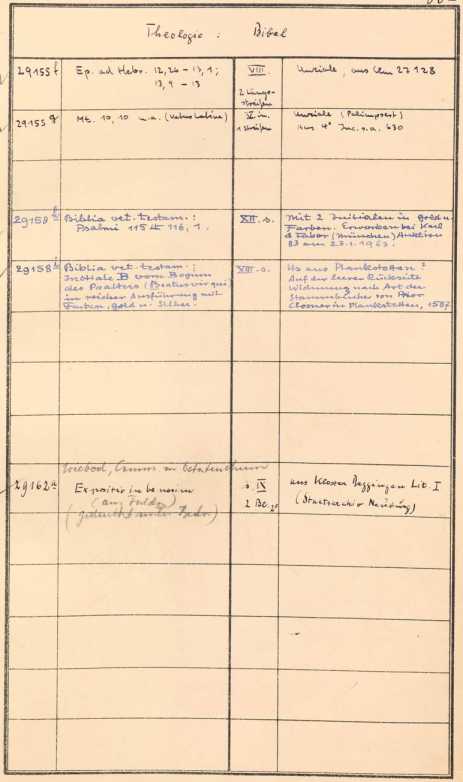 Theologie : Bibel
29155 f Ep. ad Hebr. 12,26 – 13,1; VIII. Unziale, aus Clm 27128
13,9 – 13
2 Längs-
streifen
29155 g Mt. 10,10 u.a. (Vetus Latina) in. Unziale (Palimpsest)
1 Streifen aus 4° Inc. s.a. 630
29158 Biblia vet. testam.: XII. s. Mit 2 Initialen in Gold u.
Psalmi 115 116, 1. Farben. Erworben bei Karl
& Faber (München) Auktion
am 23.1.1963.
29158 Biblia vet. testam.: XIII. s. Hs aus Plankstetten?
Initiale B vom Beginn Auf der leeren Rückseite
des Psalters (Beatus vir qui) Widmung nach Art der
in reicher Ausführung mit Stammbücher von
Farben, Gold u. Silber. in Plankstetten, 1587
29162 Expositio in s. IX aus Kloster Lit. I
(aus Fulda) 2 Bl. (Staatsarchiv Neuburg)
(gedruckt unter Beda)